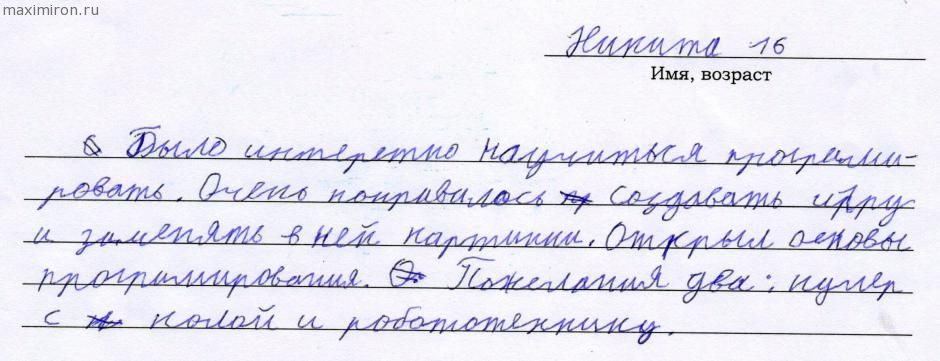 maximiron.ru
Никита 16
Имя, возраст
Было интеретно научиться програми-
ровать. Очень понравилось создавать игру
и заменять в ней картинки. Открыл основы
програмирования. Пожелания два: кулер
с колой и робототехнику.